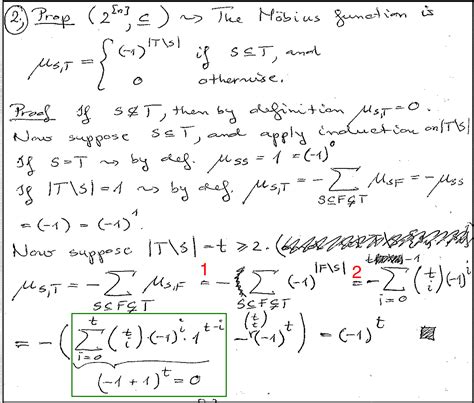 2. Prop (2^[n], ⊆) ⇝ The Möbius function is
μ_{S,T} = { (-1)^{|T\S|} if S⊆T, and
0 otherwise.
Proof If S⊈T, then by definition μ_{S,T} = 0.
Now suppose S⊆T, and apply induction on |T\S|
If S=T ⇝ by def. μ_{SS} = 1 = (-1)^0
If |T\S|=1 ⇝ by def. μ_{S,T} = - ∑_{S⊆F⊊T} μ_{SF} = -μ_{SS}
= (-1) = (-1)^1.
Now suppose |T\S| = t ≥ 2.
μ_{S,T} = - ∑_{S⊆F⊊T} μ_{S,F} =^1 - ∑_{S⊆F⊊T} (-1)^{|F\S|} =^2 - ∑_{i=0}^{t-1} (t i) (-1)^i
= - ( ∑_{i=0}^{t} (t i) · (-1)^i · 1^{t-i} - (t t) (-1)^t ) = (-1)^t
(-1+1)^t = 0